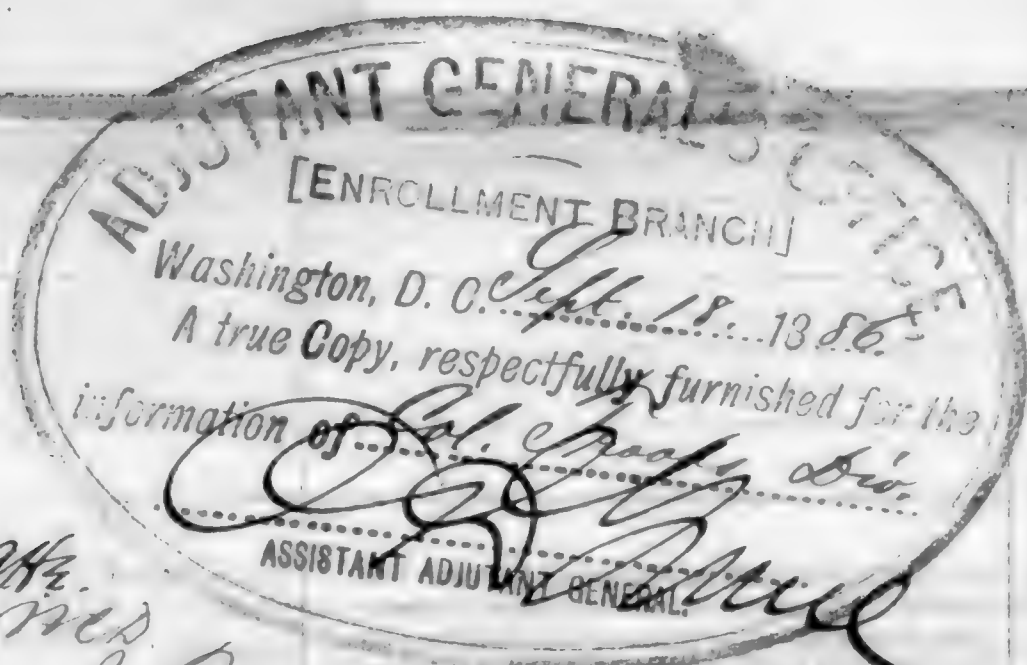 ADJUTANT GENERAL'S OFFICE
[ENROLLMENT BRANCH]
Washington, D. C. Sept. 18. 1886
A true Copy, respectfully furnished for the
information of Col. Troops Div.
ASSISTANT ADJUTANT GENERAL.